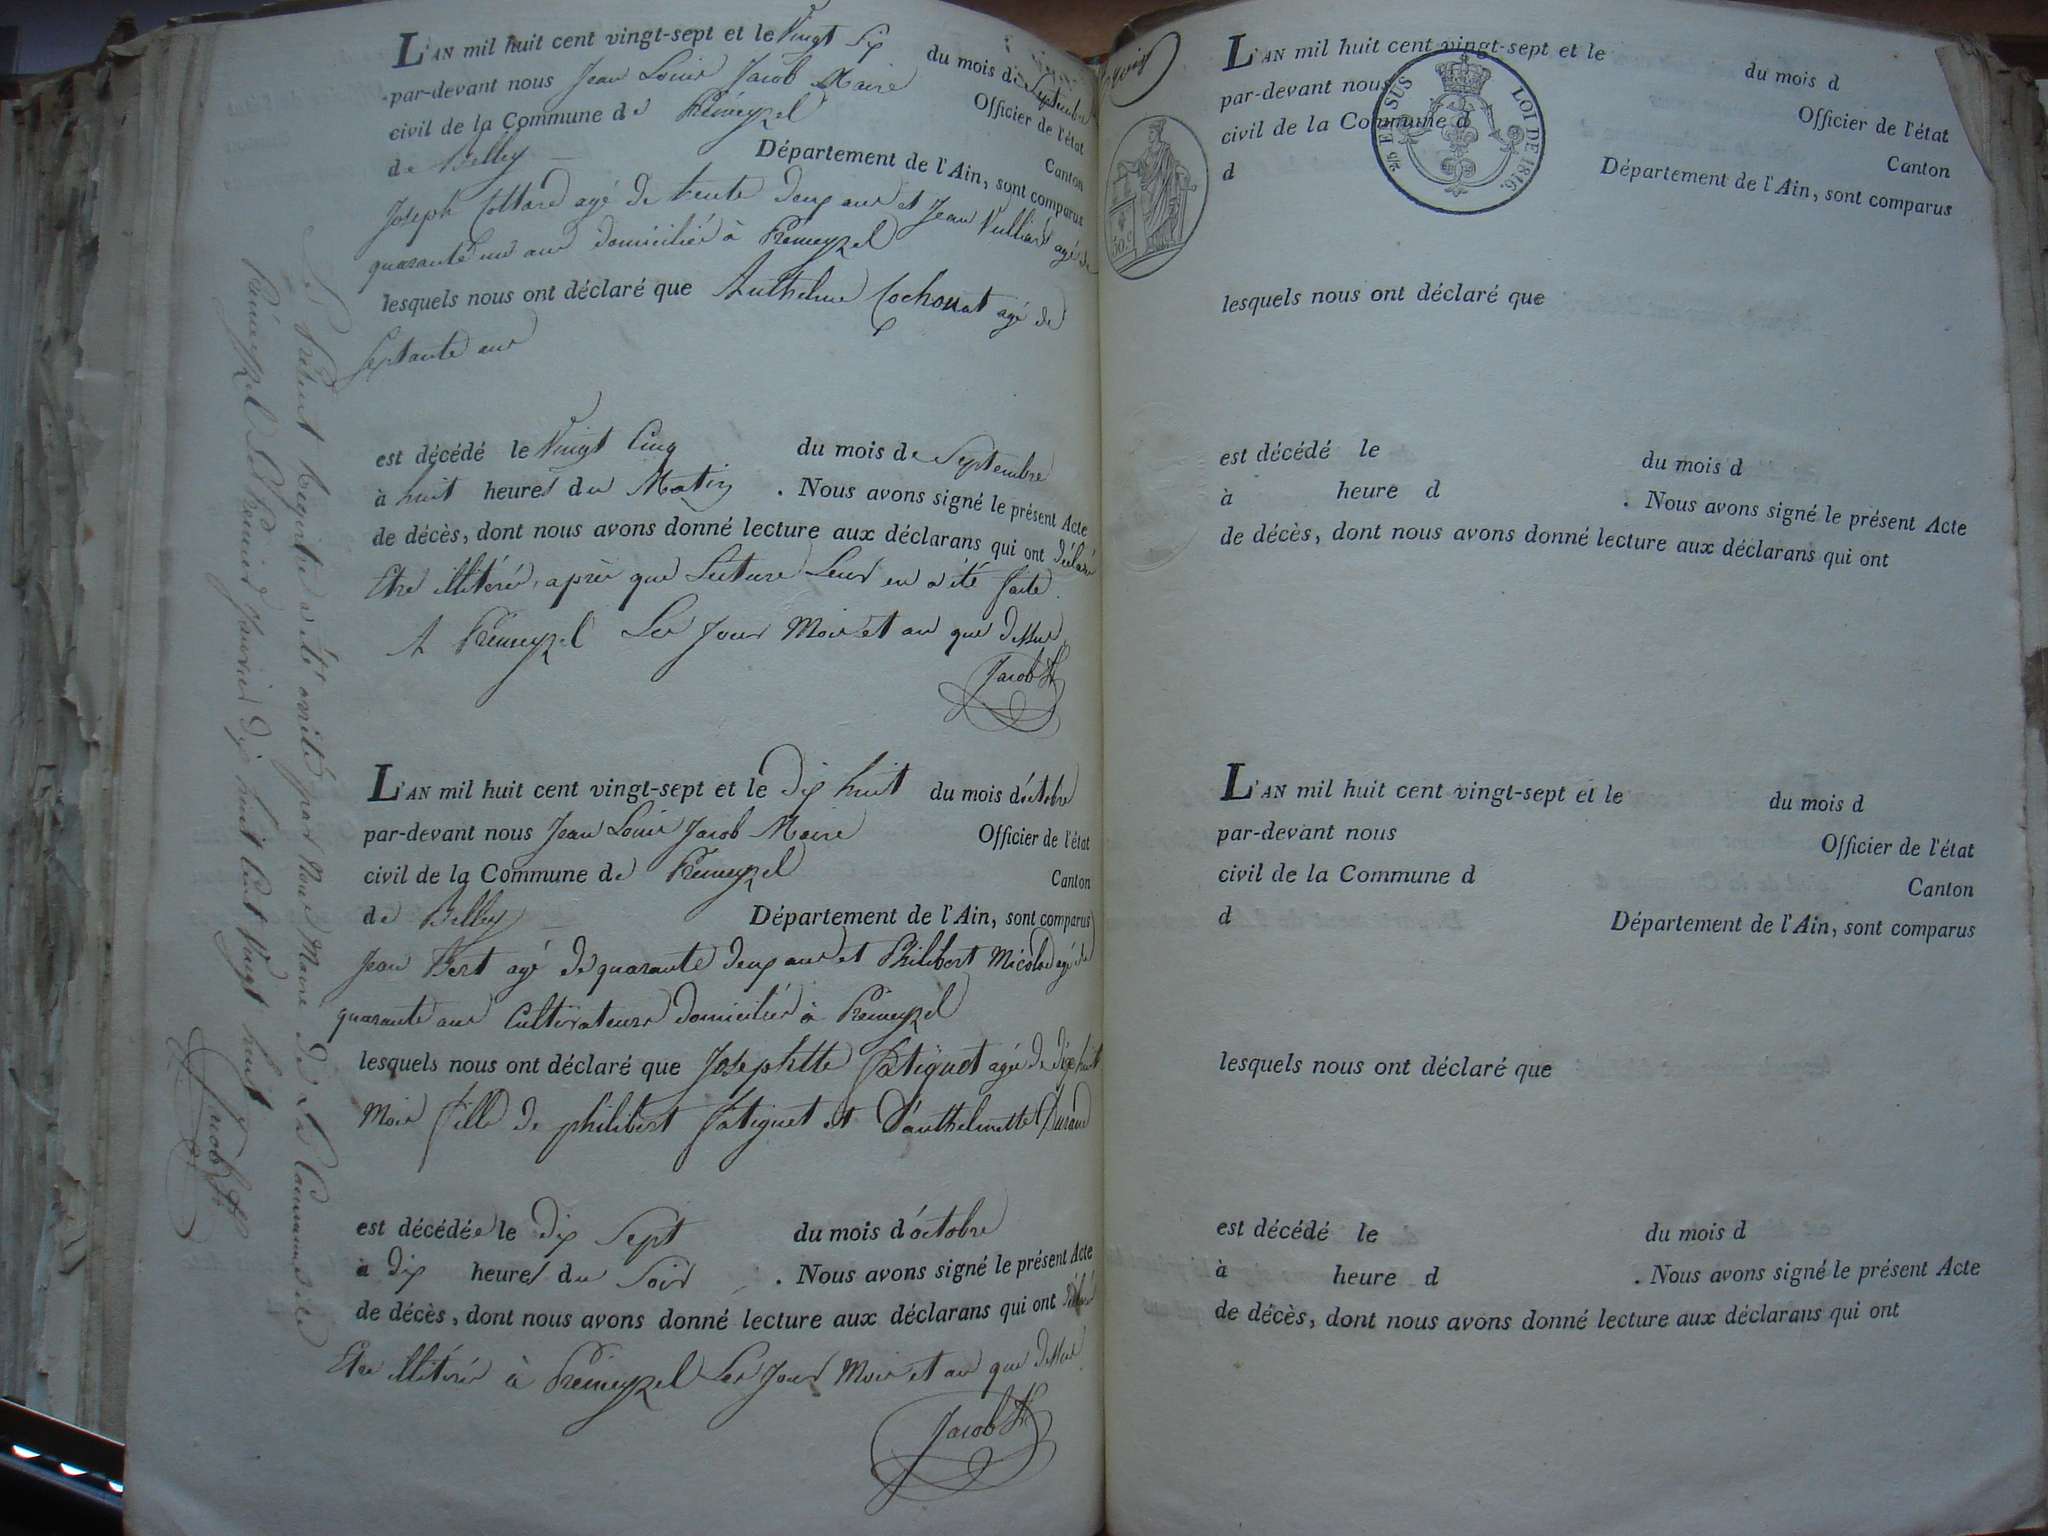 L'AN mil huit cent vingt-sept et le Vingt Six du mois de Septembre
par-devant nous Jean Louis Jacob Maire Officier de l'état
civil de la Commune de Prémeyzel Canton
de Belley Département de l'Ain, sont comparus
Joseph Cottard agé de trente deux ans et Jean Vulliard agé de
quarante un ans domiciliés à Prémeyzel
lesquels nous ont déclaré que Anthelme Cochonat agé de
Septante ans
est décédé le Vingt Cinq du mois de Septembre
à huit heures du Matin . Nous avons signé le présent Acte
de décès, dont nous avons donné lecture aux déclarans qui ont déclaré
Etre illitérés, après que Lecture Leur en a été faite.
A Prémeyzel Les Jour Mois et an que dessus
Jacob
L'AN mil huit cent vingt-sept et le dix huit du mois d'octobre
par-devant nous Jean Louis Jacob Maire Officier de l'état
civil de la Commune de Prémeyzel Canton
de Belley Département de l'Ain, sont comparus
Jean Bert agé de quarante deux ans et Philibert Micolod agé de
quarante ans Cultivateurs domiciliés à Prémeyzel
lesquels nous ont déclaré que Josephtte Patiguet agée de dix huit
Mois fille de philibert Patiguet et D'anthelmette Durand
est décédée le dix Sept du mois d'octobre
à dix heures du Soir . Nous avons signé le présent Acte
de décès, dont nous avons donné lecture aux déclarans qui ont déclaré
Etre illitérés à Prémeyzel Les Jour Mois et an que dessus
Jacob
Le Présent Registre a été arrêté par Nous Maire de La Commune de
Prémeyzel Le Premier Janvier dix huit Cent Vingt huit
Jacob
L'AN mil huit cent vingt-sept et le du mois d
par-devant nous Officier de l'état
civil de la Commune d Canton
d Département de l'Ain, sont comparus
2/10 EN SUS LOI DE 1816.
50.c
lesquels nous ont déclaré que
est décédé le du mois d
à heure d . Nous avons signé le présent Acte
de décès, dont nous avons donné lecture aux déclarans qui ont
L'AN mil huit cent vingt-sept et le du mois d
par-devant nous Officier de l'état
civil de la Commune d Canton
d Département de l'Ain, sont comparus
lesquels nous ont déclaré que
est décédé le du mois d
à heure d . Nous avons signé le présent Acte
de décès, dont nous avons donné lecture aux déclarans qui ont